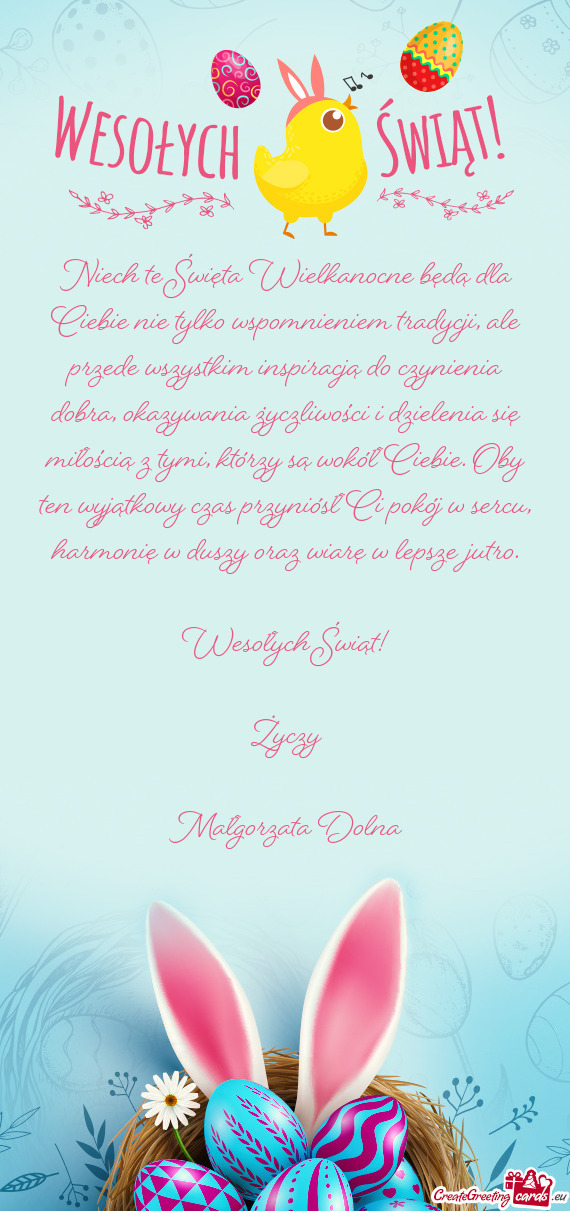 Wesołych Świąt!
Niech te Święta Wielkanocne będą dla
Ciebie nie tylko wspomnieniem tradycji, ale
przede wszystkim inspiracją do czynienia
dobra, okazywania życzliwości i dzielenia się
miłością z tymi, którzy są wokół Ciebie. Oby
ten wyjątkowy czas przyniósł Ci pokój w sercu,
harmonię w duszy oraz wiarę w lepsze jutro.
Wesołych Świąt!
Życzy
Małgorzata Dolna
CreateGreetingcards.eu